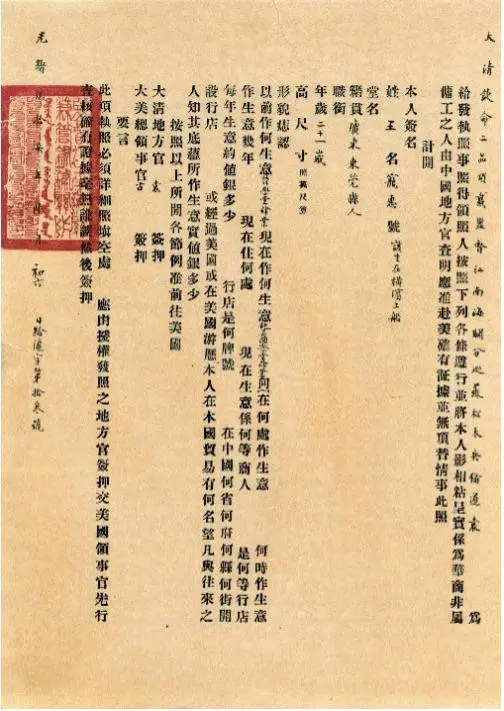 大清欽命二品頂戴監督江南海關分巡蘇松太兵備道袁 為
給發執照事照得領照人按照下列各條遵行並將本人影相粘呈實係為華商非屬
傭工之人由中國地方官查明應准赴美確有証據並無頂替情事此照
計開
本人簽名
姓 王 名 寵惠 號 該生在橫濱上船
堂名
籍貫 廣東東莞縣人
職銜
年歲 二十一歲
高 尺 寸 照英尺算
形貌誌認
以前作何生意 現在作何生意 在何處作生意 何時作生意
作生意幾年 現在住何處 現在生意係何等商人 是何等行店
每年生意約值銀多少 行店是何牌號 在中國何省何府何縣何街開
設行店 或經過美國或在美國游歷本人在本國貿易有何名望凡與往來之
人知其底蘊所作生意實值銀多少
按照以上所開各節例准前往美國
大清地方官 袁 簽押
大美總領事官古 簽押
要言
此項執照必須詳細照填空處 應由授權發照之地方官簽押交美國領事官先行
查核確有證據毫無訛誤然後簽押
光緒 年 月 初六 日給道字第拾叁號